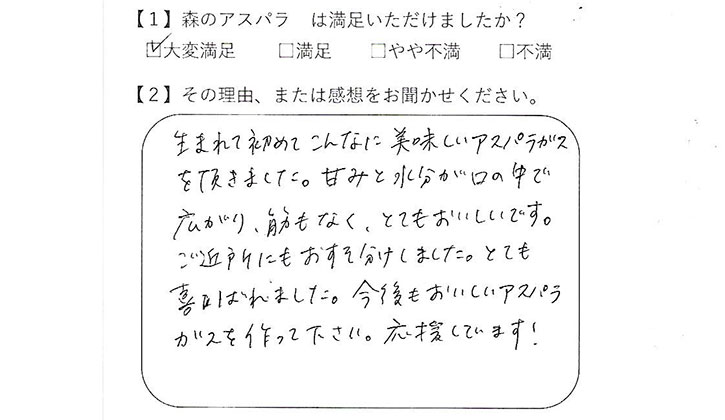 【1】森のアスパラ　は満足いただけましたか？
☑大変満足　□満足　□やや不満　□不満
【2】その理由、または感想をお聞かせください。
生まれて初めてこんなに美味しいアスパラガス
を頂きました。甘みと水分が口の中で
広がり、筋もなく、とてもおいしいです。
ご近所にもおすそ分けしました。とても
喜ばれました。今後もおいしいアスパラ
ガスを作って下さい。応援しています!